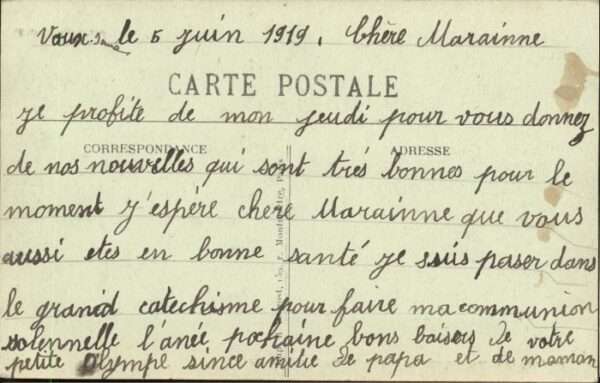 le 5 juin 1919. Chère Marainne
CARTE POSTALE
je profite de mon jeudi pour vous donnez
CORRESPONDANCE ADRESSE
de nos nouvelles qui sont trés bonnes pour le
moment j'espére chere Marainne que vous
aussi etes en bonne santé je suis paser dans
le grand catechisme pour faire ma communion
solennelle l'anée pochaine bons baisers de votre
petite Olympe since amitie de papa et de maman